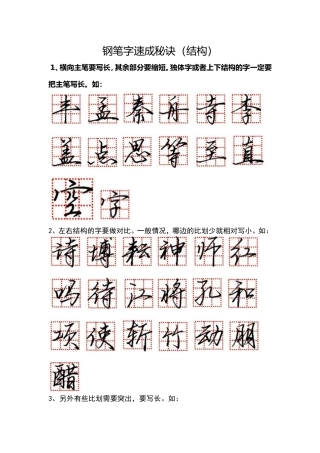 钢笔字速成秘诀（结构）
1、横向主笔要写长，其余部分要缩短。独体字或者上下结构的字一定要
把主笔写长。如：
丰孟秦舟寺李
盖点思等至真
空字
2、左右结构的字要做对比。一般情况，哪边的比划少就相对写小。如：
诗博耘神师红
鸣待江将孔和
项使斩竹动朋
醋
3、另外有些比划需要突出，要写长。如：